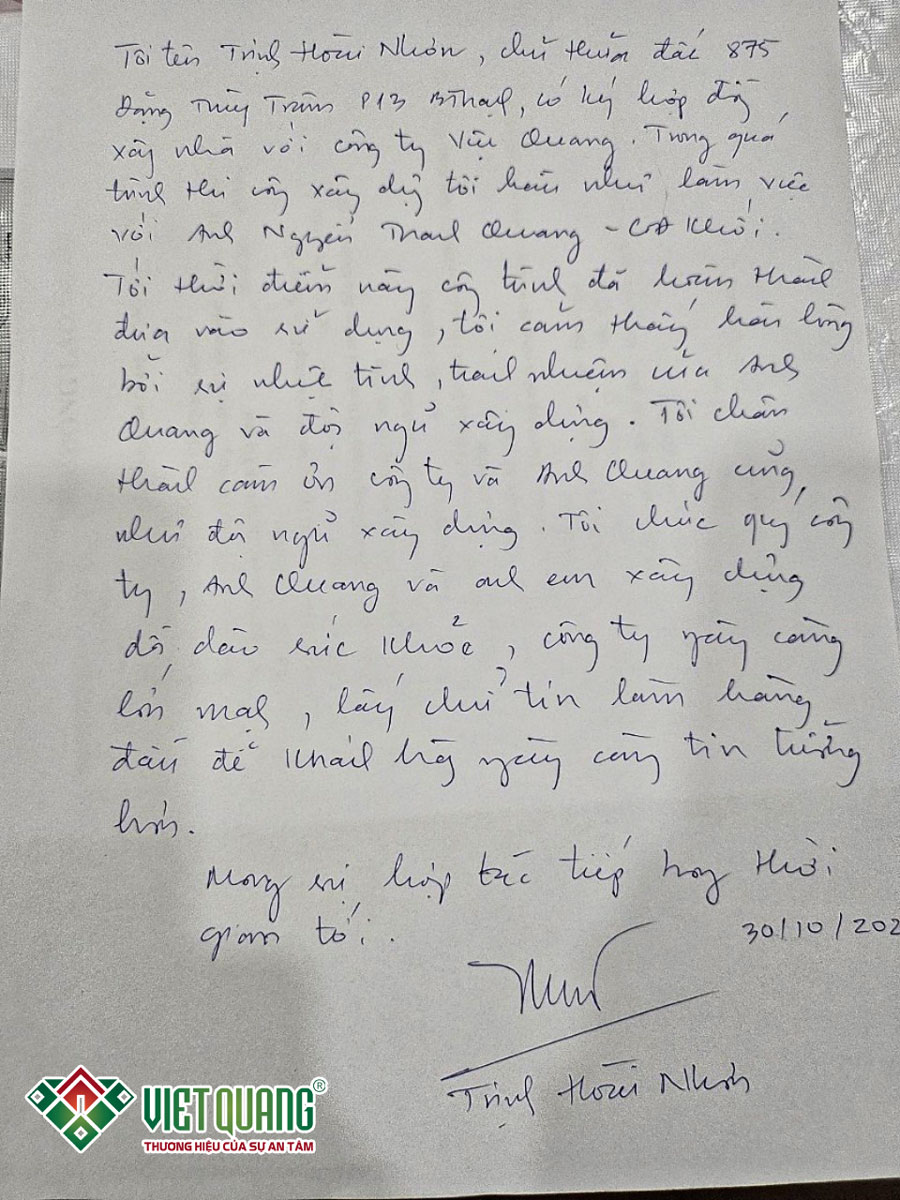 Tôi tên Trịnh Hoài Nhơn, chủ thửa đất 875
Đặng Thùy Trâm P13 BThạnh, có ký hợp đồng
xây nhà với công ty Việt Quang. Trong quá
trình thi công xây dựng tôi hầu như làm việc
với Anh Nguyễn Thanh Quang -
Tới thời điểm này công trình đã hoàn thành
đưa vào sử dụng, tôi cảm thấy hài lòng
bởi sự nhiệt tình, trách nhiệm của Anh
Quang và đội ngủ xây dựng. Tôi chân
thành cảm ơn công ty và Anh Quang cũng
như đội ngủ xây dựng. Tôi chúc quý công
ty, Anh Quang và anh em xây dựng
dồi dào sức khỏe, công ty ngày càng
lớn mạnh, lấy chử tín làm hàng
đầu để khách hàng ngày càng tin tưởng
hơn.
Mong sự hợp tác tiếp trong thời
gian tới.
30/10/202
Trịnh Hoài Nhơn
VIETQUANG®
THƯƠNG HIỆU CỦA SỰ AN TÂM